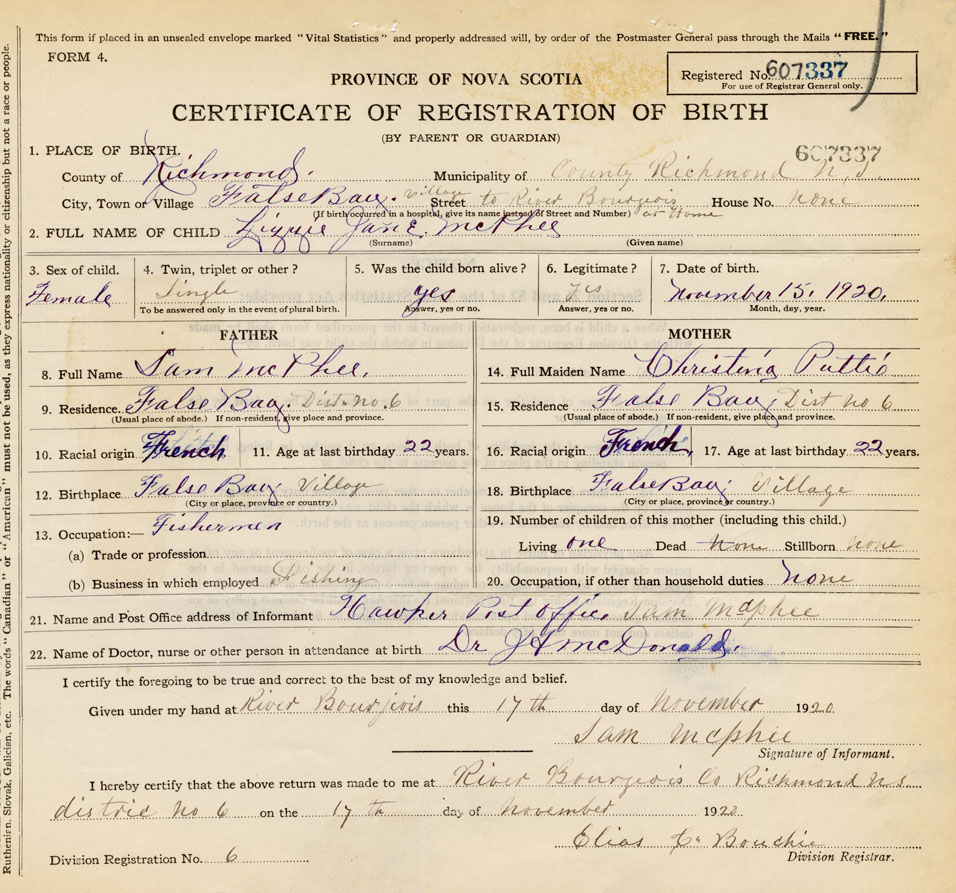 This form if placed in an unsealed envelope marked "Vital Statistics" and properly addressed will, by order of the Postmaster General pass through the Mails "FREE."
FORM 4.
PROVINCE OF NOVA SCOTIA
Registered No. 607337
For use of Registrar General only.
CERTIFICATE OF REGISTRATION OF BIRTH
(BY PARENT OR GUARDIAN)
607337
1. PLACE OF BIRTH.
County of Richmond. Municipality of County Richmond N.S.
City, Town or Village False Bay. Village Street to River Bourgeois House No. none
(If birth occurred in a hospital, give its name instead of Street and Number) at Home
2. FULL NAME OF CHILD Lizzie Jane McPhee
(Surname) (Given name)
3. Sex of child. 4. Twin, triplet or other? 5. Was the child born alive? 6. Legitimate? 7. Date of birth.
Female Single yes yes November 15, 1920.
To be answered only in the event of plural birth. Answer, yes or no. Answer, yes or no. Month, day, year.
FATHER MOTHER
8. Full Name Sam McPhee. 14. Full Maiden Name Christina Pattie
9. Residence. False Bay. Dist. no. 6 15. Residence False Bay Dist no 6
(Usual place of abode.) If non-resident, give place and province. (Usual place of abode.) If non-resident, give place and province.
10. Racial origin French 11. Age at last birthday 22 years. 16. Racial origin French 17. Age at last birthday 22 years.
12. Birthplace False Bay Village 18. Birthplace False Bay Village
(City or place, province or country.) (City or place, province or country.)
13. Occupation:— Fishermen 19. Number of children of this mother (including this child.)
(a) Trade or profession Living one Dead none Stillborn none
(b) Business in which employed Fishing 20. Occupation, if other than household duties none
21. Name and Post Office address of Informant Hawker Post Office, Sam Mcphee
22. Name of Doctor, nurse or other person in attendance at birth Dr J H McDonald.
I certify the foregoing to be true and correct to the best of my knowledge and belief.
Given under my hand at River Bourgeois this 17 th day of November 1920
Sam Mcphee
Signature of Informant.
I hereby certify that the above return was made to me at River Bourgeois Co Richmond N.S.
distric no 6 on the 17 th day of November 1920
Elias C. Bouchie
Division Registrar.
Division Registration No. 6
Ruthenien, Slovak, Galician, etc. The words "Canadian" or "American" must not be used, as they express nationality or citizenship but not a race or people.